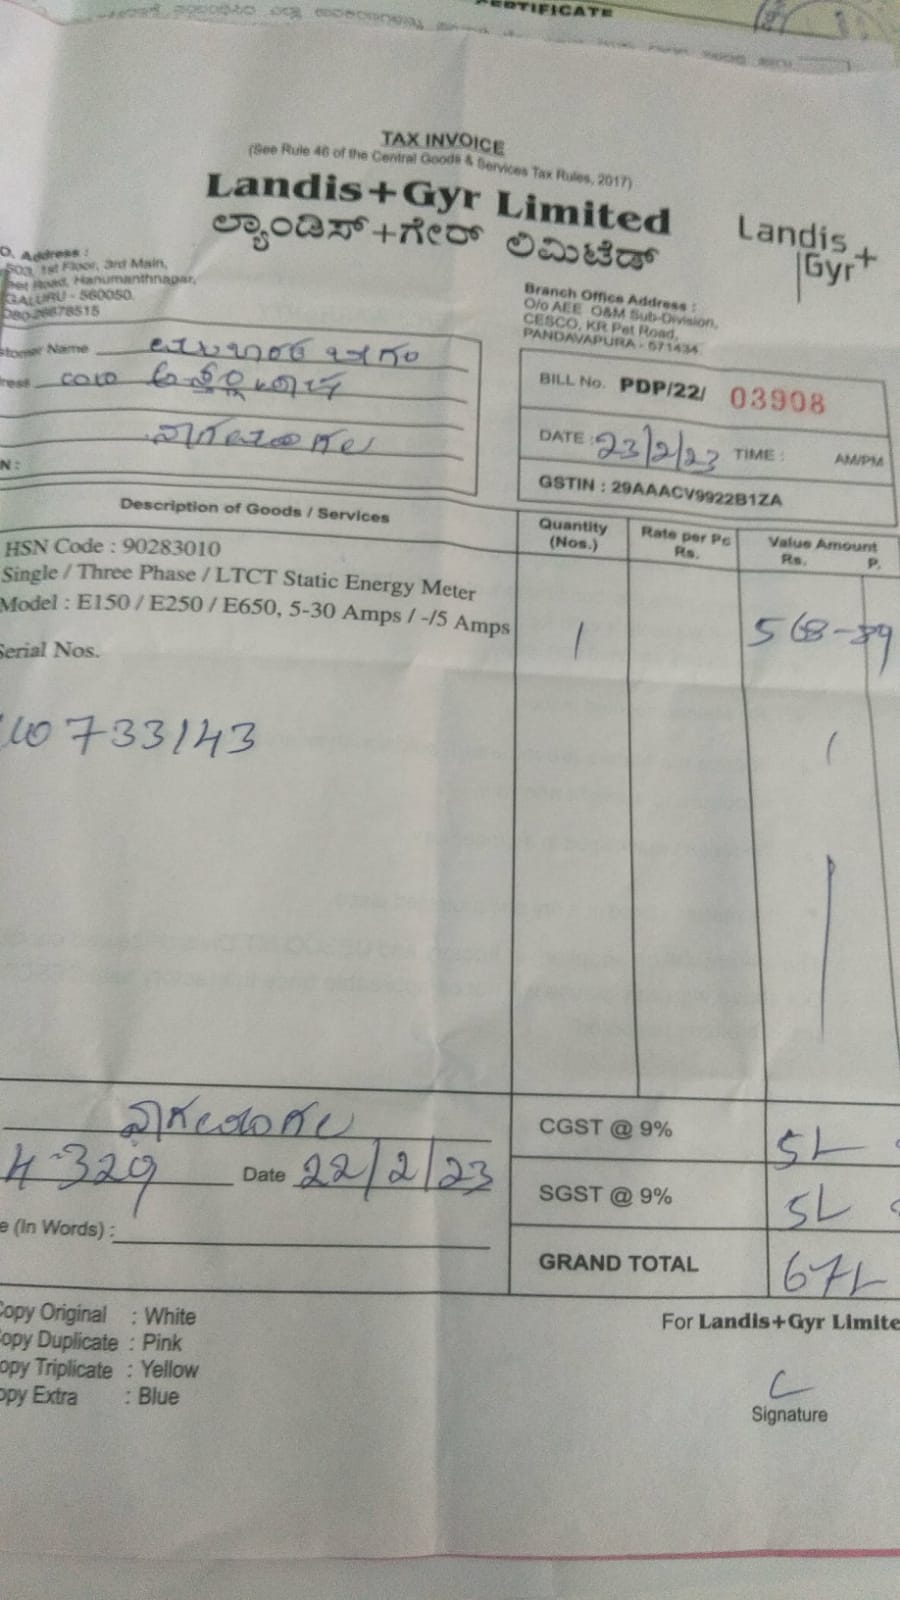 CERTIFICATE
TAX INVOICE
(See Rule 46 of the Central Goods & Services Tax Rules, 2017)
Landis+Gyr Limited
ಲ್ಯಾಂಡಿಸ್+ಗೇರ್ ಲಿಮಿಟೆಡ್
Landis
Gyr+
O. Address :
503, 1st Floor, 3rd Main,
Road, Hanumanthnagar,
GALURU - 560050.
080-26678515
Branch Office Address :
O/o AEE O&M Sub-Division,
CESCO, KR Pet Road,
PANDAVAPURA - 571434.
stomer Name
ress
N:
BILL No. PDP/22/ 03908
DATE : 23/2/23 TIME : AM/PM
GSTIN : 29AAACV9922B1ZA
Description of Goods / Services
Quantity (Nos.)
Rate per Pc Rs.
Value Amount
Rs. P.
HSN Code : 90283010
Single / Three Phase / LTCT Static Energy Meter
Model : E150 / E250 / E650, 5-30 Amps / -/5 Amps
1
568-89
Serial Nos.
10733143
CGST @ 9%
SGST @ 9%
GRAND TOTAL
4-329 Date 22/2/23
e (In Words) :
Copy Original : White
Copy Duplicate : Pink
opy Triplicate : Yellow
opy Extra : Blue
For Landis+Gyr Limite
Signature